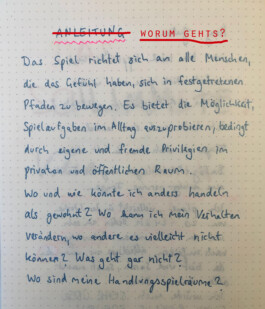 ANLEITUNG WORUM GEHTS?
Das Spiel richtet sich an alle Menschen,
die das Gefühl haben, sich in festgetretenen
Pfaden zu bewegen. Es bietet die Möglichkeit,
Spielaufgaben im Alltag auszuprobieren, bedingt
durch eigene und fremde Privilegien im
privaten und öffentlichen Raum.
Wo und wie könnte ich anders handeln
als gewohnt? Wo kann ich mein Verhalten
verändern, wo andere es vielleicht nicht
können? Was geht gar nicht?
Wo sind meine Handlungsspielräume?